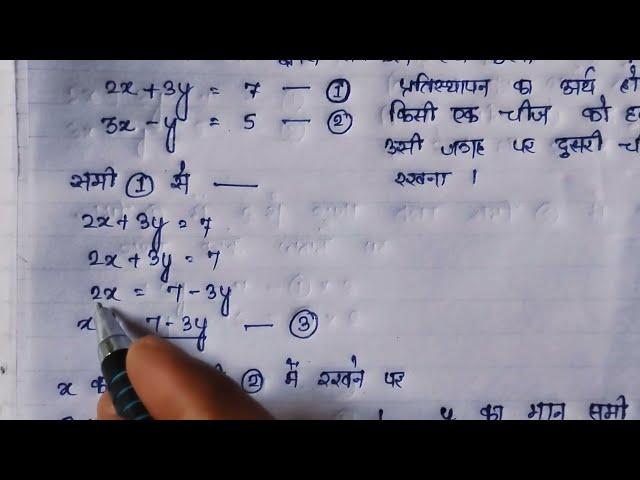 2x + 3y = 7 — ①
3x - y = 5 — ②
प्रतिस्थापन का अर्थ हो
किसी एक चीज को ह
उसी जगह पर दुसरी ची
रखना ।
समी ① से —
2x + 3y = 7
2x + 3y = 7
2x = 7 - 3y
x 7 - 3y — ③
x ② में रखने पर
y का मान समी